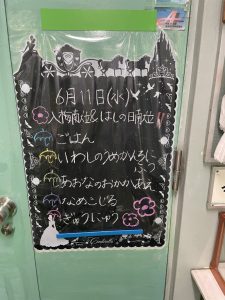 6月11日(水)
入梅献立&はしの日献立
ごはん
いわしのうめかんろに
ふつ
あおなのおかかあえ
なめこじる
ぎゅうにゅう
Cinderella